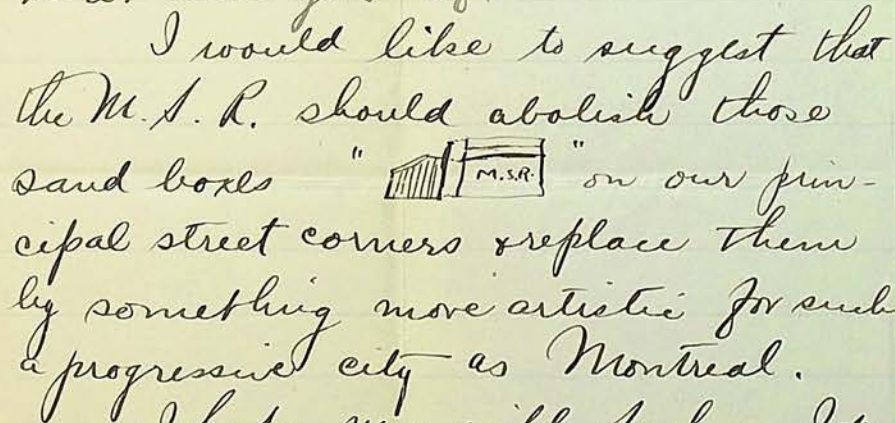 I would like to suggest that
the M. S. R. should abolish those
sand boxes " M.S.R. " on our prin-
cipal street corners & replace them
by something more artistic for such
a progressive city as Montreal.